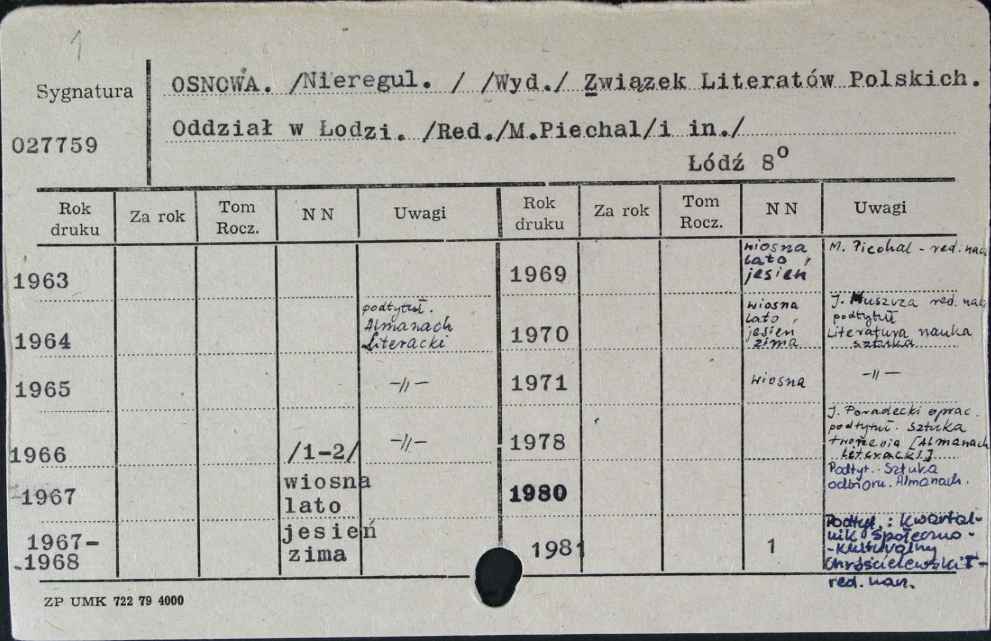 1
Sygnatura
OSNOWA. /Nieregul. / /Wyd./ Związek Literatów Polskich.
027759
Oddział w Łodzi. /Red./M.Piechal/i in./
Łódź 8°
Rok druku Za rok Tom Rocz. N N Uwagi Rok druku Za rok Tom Rocz. N N Uwagi
1963
1964 podtytuł. Almanach Literacki
1965 -//-
1966 /1-2/ -//-
1967 wiosna lato
1967-1968 jesień zima
1969 wiosna lato, jesień M. Piechal - red. nac
1970 wiosna lato, jesień zima J. Huszcza red. nac podtytuł Literatura nauka sztuka
1971 wiosna -//-
1978 J. Poradecki oprac. podtytuł. Sztuka tworzenia [Almanach Literacki]
1980 Podtyt. Sztuka odbioru. Almanach.
1981 1 Podtyt.: Kwartalnik Społeczno-Kulturalny Chróścielewski T- red. nan.
ZP UMK 722 79 4000